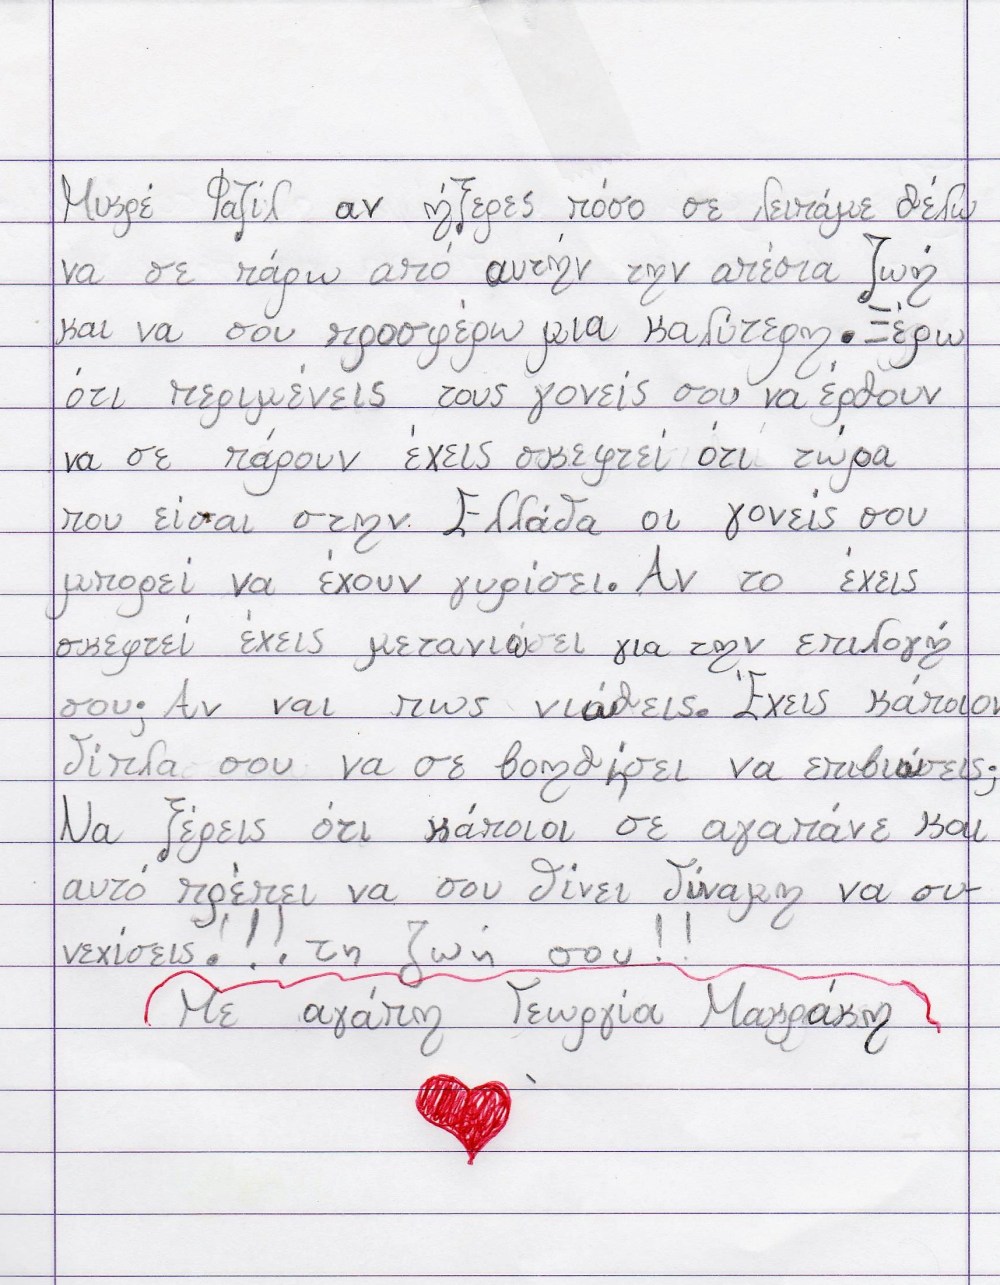 Μικρέ Φαζίλ αν ήξερες πόσο σε λειπάμε θέλω
να σε πάρω από αυτήν την απέσια ζωή
και να σου προσφέρω μια καλύτερη. Ξέρω
ότι περιμένεις τους γονείς σου να έρθουν
να σε πάρουν έχεις σκεφτεί ότι τώρα
που είσαι στην Ελλάδα οι γονείς σου
μπορεί να έχουν γυρίσει. Αν το έχεις
σκεφτεί έχεις μετανιώσει για την επιλογή
σου; Αν ναι πως νιώθεις. Έχεις κάποιον
δίπλα σου να σε βοηθήσει να επιβιώσεις;
Να ξέρεις ότι κάποιοι σε αγαπάνε και
αυτό πρέπει να σου δίνει δύναμη να συ-
νεχίσεις.!!! τη ζωή σου!!
Με αγάπη Γεωργία Μακράκη